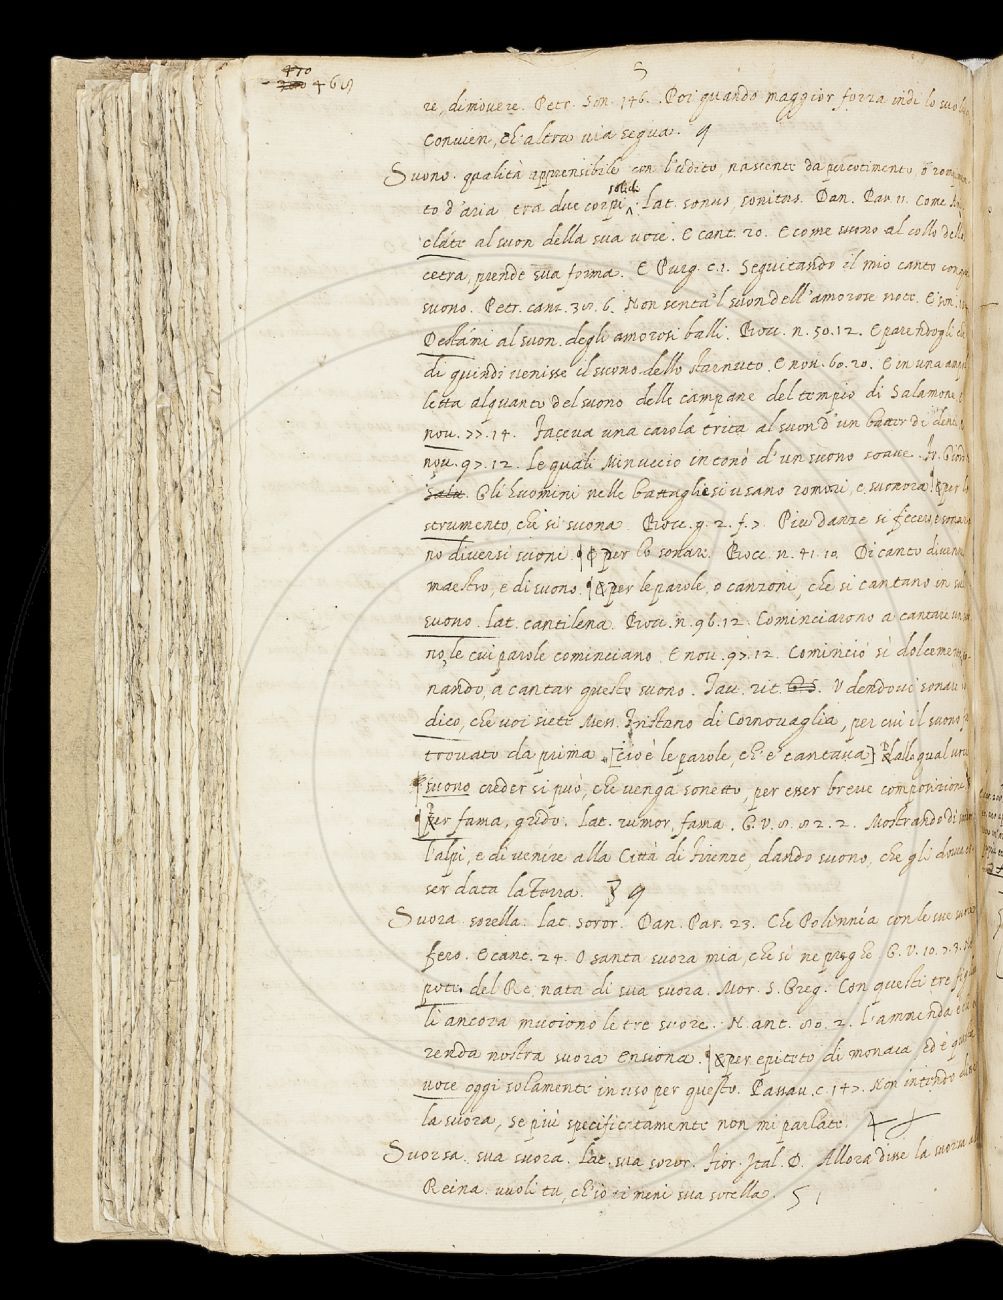 470
468
S
re, dimovere. Petr. Son. 146. Poi quando maggior forza indi lo svolge
Convien, ch'altra via segua.
Suono. qualità apprensibile con l'udito, nascente da percotimento, o rompimen-
to d'aria tra due corpi solidi. Lat. sonus, sonitus. Dan. Par. 11. Come
al suon della sua voce. E cant. 20. E come suono al collo della
cetra, prende sua forma. E Purg. c. 1. Seguitando il mio canto con quel
suono. Petr. canz. 38. 6. Non senta 'l suon dell'amorose note. E son.
Destami al suon degli amorosi balli. Bocc. n. 50. 12. E parendogli che
di quindi venisse il suono dello starnuto. E nov. 60. 20. E in una ampol
letta alquanto del suono delle campane del tempio di Salamone.
nov. 77. 14. Faceva una carola trita al suon d'un batter di denti.
nov. 97. 12. Le quali Minuccio intonò d'un suono soave. Fr. Giord.
Salv. Gli huomini nelle battaglie si usano romori, e suonora. per lo
strumento, che si suona. Bocc. g. 2. f. 7. Piu danze si fecero, e sonaro
no diversi suoni. per lo sonare. Bocc. n. 41. 10. Di canto divenne
maestro, e di suono. per le parole, o canzoni, che si cantano in sul
suono. Lat. cantilena. Bocc. n. 96. 12. Cominciarono a cantare un suo
no, le cui parole cominciano. E nov. 97. 12. Cominciò sì dolcemente so-
nando, a cantar questo suono. Tav. rit. Udendovi sonare
dico, che voi siete Mess. Tristano di Cornovaglia, per cui il suono fu
trovato da prima. [cioè le parole, ch'e' cantava] Dalla qual voce
suono creder si può, che venga sonetto, per esser breve composizione.
per fama, grido. Lat. rumor, fama. G. V. 8. 82. 2. Mostrando di
l'alpi, e di venire alla Città di Firenze, dando suono, che gli dovea es-
ser data la Terra.
Suora. sorella. Lat. soror. Dan. Par. 23. Che Polinnia con le sue suore
fero. E cant. 24. O santa suora mia, che sì ne preghe. G. V. 10. 7. 3.
pote del Re, nata di sua suora. Mor. S. Greg. Con questi tre figliuo
li ancora muoiono le tre suore. N. ant. 80. 2. L'ammenda
renda nostra suora Ensiona. per epiteto di monaca, ed è questa
voce oggi solamente in uso per questo. Passav. c. 147. Non intendo
la suora, se più specificatamente non mi parlate.
Suorsa. sua suora. Lat. sua soror. Fior. Ital. D. Allora disse la suorsa alla
Reina. vuoli tu, ch'io ti meni sua sorella.